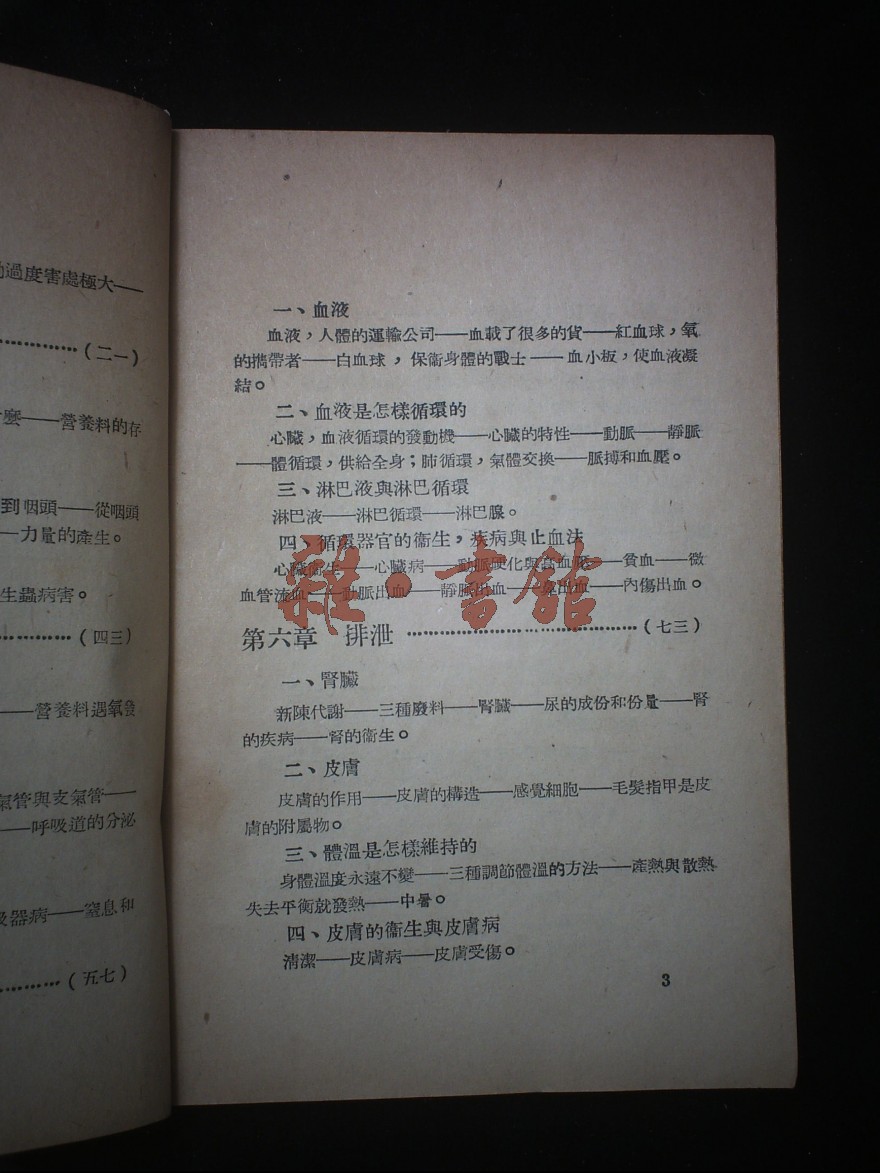 過度害處極大——
(二一)
麽——營養料的存
到咽頭——從咽頭
——力量的產生。
生蟲病害。
(四三)
——營養料遇氧發
氣管與支氣管——
——呼吸道的分泌
器病——窒息和
(五七)
一、血液
血液，人體的運輸公司——血載了很多的貨——紅血球，氧
的攜帶者——白血球，保衞身體的戰士——血小板，使血液凝
結。
二、血液是怎樣循環的
心臟，血液循環的發動機——心臟的特性——動脈——靜脈
——體循環，供給全身；肺循環，氣體交換——脈搏和血壓。
三、淋巴液與淋巴循環
淋巴液——淋巴循環——淋巴腺。
四、循環器官的衞生，疾病與止血法
心臟衞生——心臟病——動脈硬化與高血壓——貧血——微
血管流血——動脈出血——靜脈出血——鼻出血——內傷出血。
雜·書館
第六章 排泄 ……………………………(七三)
一、腎臟
新陳代謝——三種廢料——腎臟——尿的成份和份量——腎
的疾病——腎的衞生。
二、皮膚
皮膚的作用——皮膚的構造——感覺細胞——毛髮指甲是皮
膚的附屬物。
三、體溫是怎樣維持的
身體溫度永遠不變——三種調節體溫的方法——產熱與散熱
失去平衡就發熱——中暑。
四、皮膚的衞生與皮膚病
清潔——皮膚病——皮膚受傷。
3